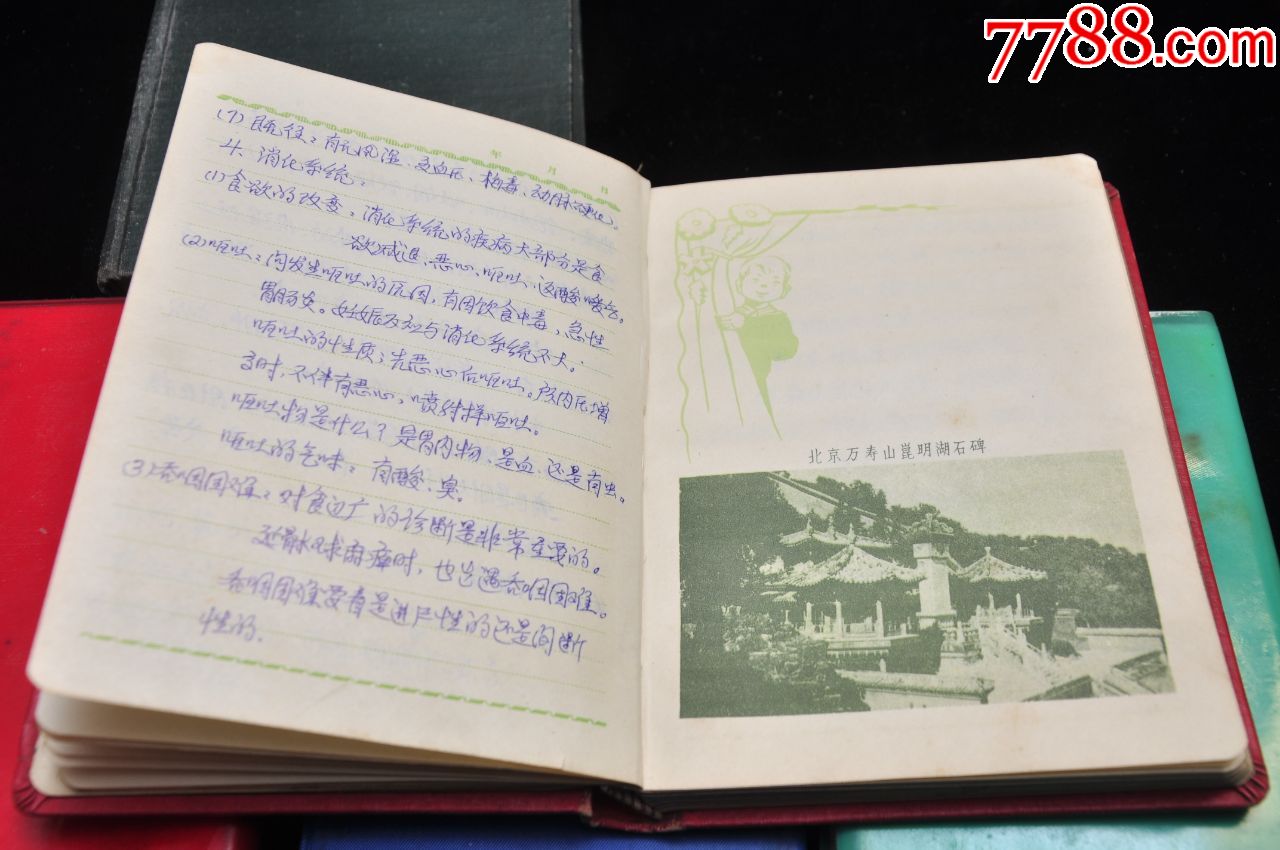 7788.com
年 月 日
(7) 既往：有无风湿、高血压、梅毒、动脉硬化。
4、消化系统：
(1) 食欲的改变，消化系统的疾病大部分是食
欲减退、恶心、呕吐、返酸嗳气。
(2) 呕吐：问发生呕吐的原因，有因饮食中毒，急性
胃肠炎。妊娠反应与消化系统不大。
呕吐的性质：先恶心后呕吐。颅内压增
高时，不伴有恶心，喷射样呕吐。
呕吐物是什么？是胃内物、是血、还是有虫。
呕吐的气味：有酸、臭。
(3) 吞咽困难：对食边广的诊断是非常重要的。
还有 时，也岂遇吞咽困难。
吞咽困难要看是进尸性的还是间断
性的.
北京万寿山崑明湖石碑